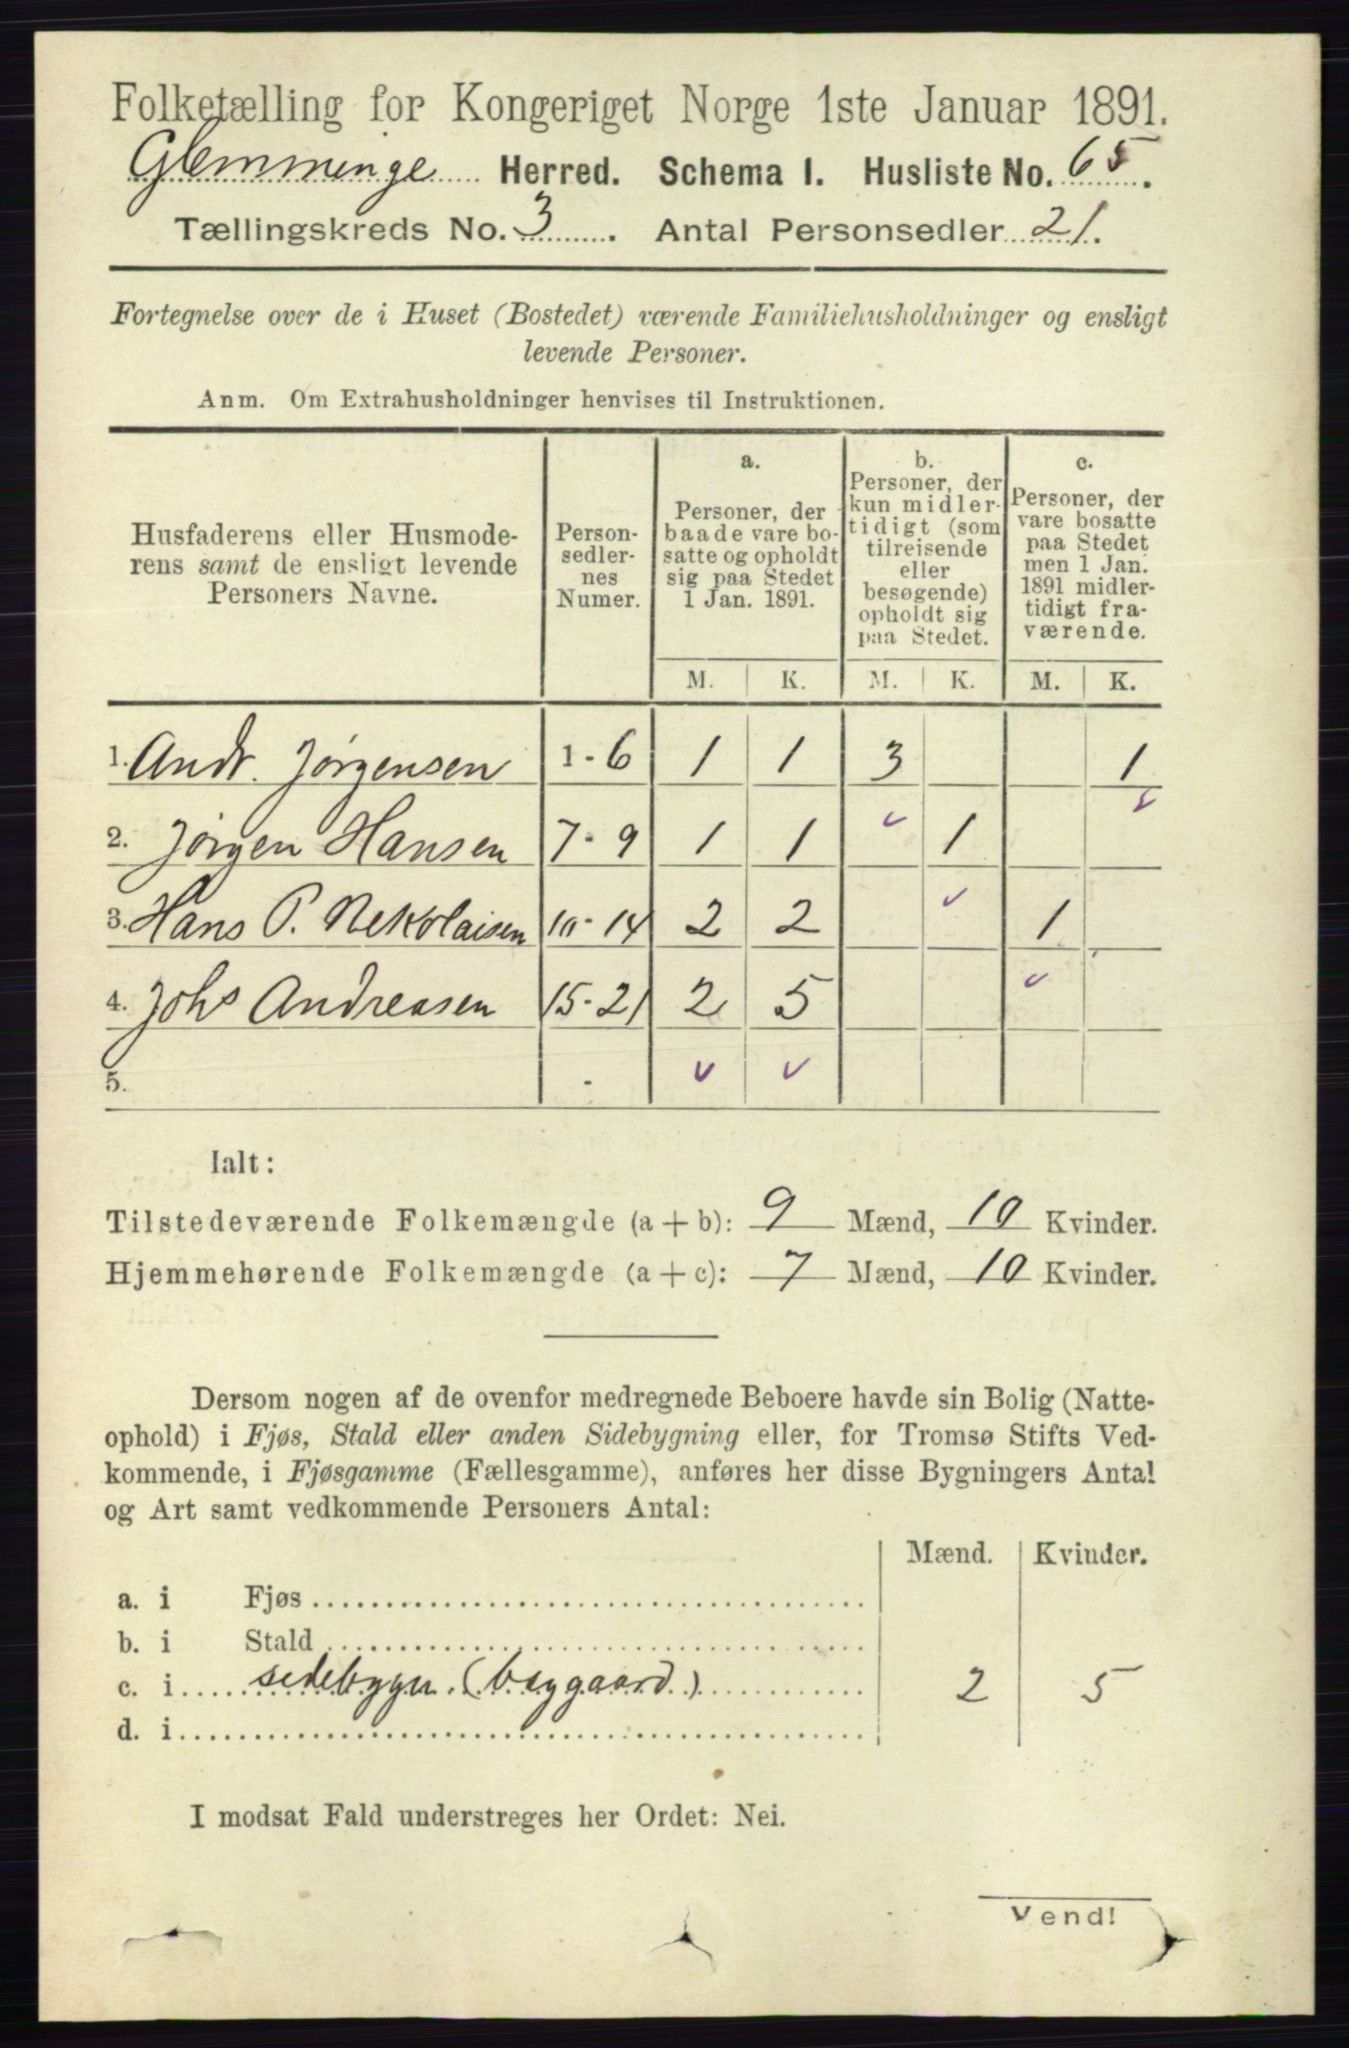 Folketælling for Kongeriget Norge 1ste Januar 1891.
Glemminge Herred. Schema I. Husliste No. 65.
Tællingskreds No. 3. Antal Personsedler 21.
Fortegnelse over de i Huset (Bostedet) værende Familiehusholdninger og ensligt
levende Personer.
Anm. Om Extrahusholdninger henvises til Instruktionen.
Husfaderens eller Husmode-
rens samt de ensligt levende
Personers Navne.
Person-
sedler-
nes
Numer.
a.
Personer, der
baade vare bo-
satte og opholdt
sig paa Stedet
1 Jan. 1891.
b.
Personer, der
kun midler-
tidigt (som
tilreisende
eller
besøgende)
opholdt sig
paa Stedet.
c.
Personer, der
vare bosatte
paa Stedet
men 1 Jan.
1891 midler-
tidigt fra-
værende.
M. K. M. K. M. K.
1. Andr. Jørgensen 1-6 1 1 3 1
2. Jørgen Hansen 7-9 1 1 1
3. Hans P. Nekolaisen 10-14 2 2 1
4. Johs Andreasen 15-21 2 5
5. -
Ialt:
Tilstedeværende Folkemængde (a + b): 9 Mænd, 10 Kvinder.
Hjemmehørende Folkemængde (a + c): 7 Mænd, 10 Kvinder.
Dersom nogen af de ovenfor medregnede Beboere havde sin Bolig (Natte-
ophold) i Fjøs, Stald eller anden Sidebygning eller, for Tromsø Stifts Ved-
kommende, i Fjøsgamme (Fællesgamme), anføres her disse Bygningers Antal
og Art samt vedkommende Personers Antal:
Mænd. Kvinder.
a. i Fjøs
b. i Stald
c. i sidebygn. (baygaard) 2 5
d. i
I modsat Fald understreges her Ordet: Nei.
Vend!